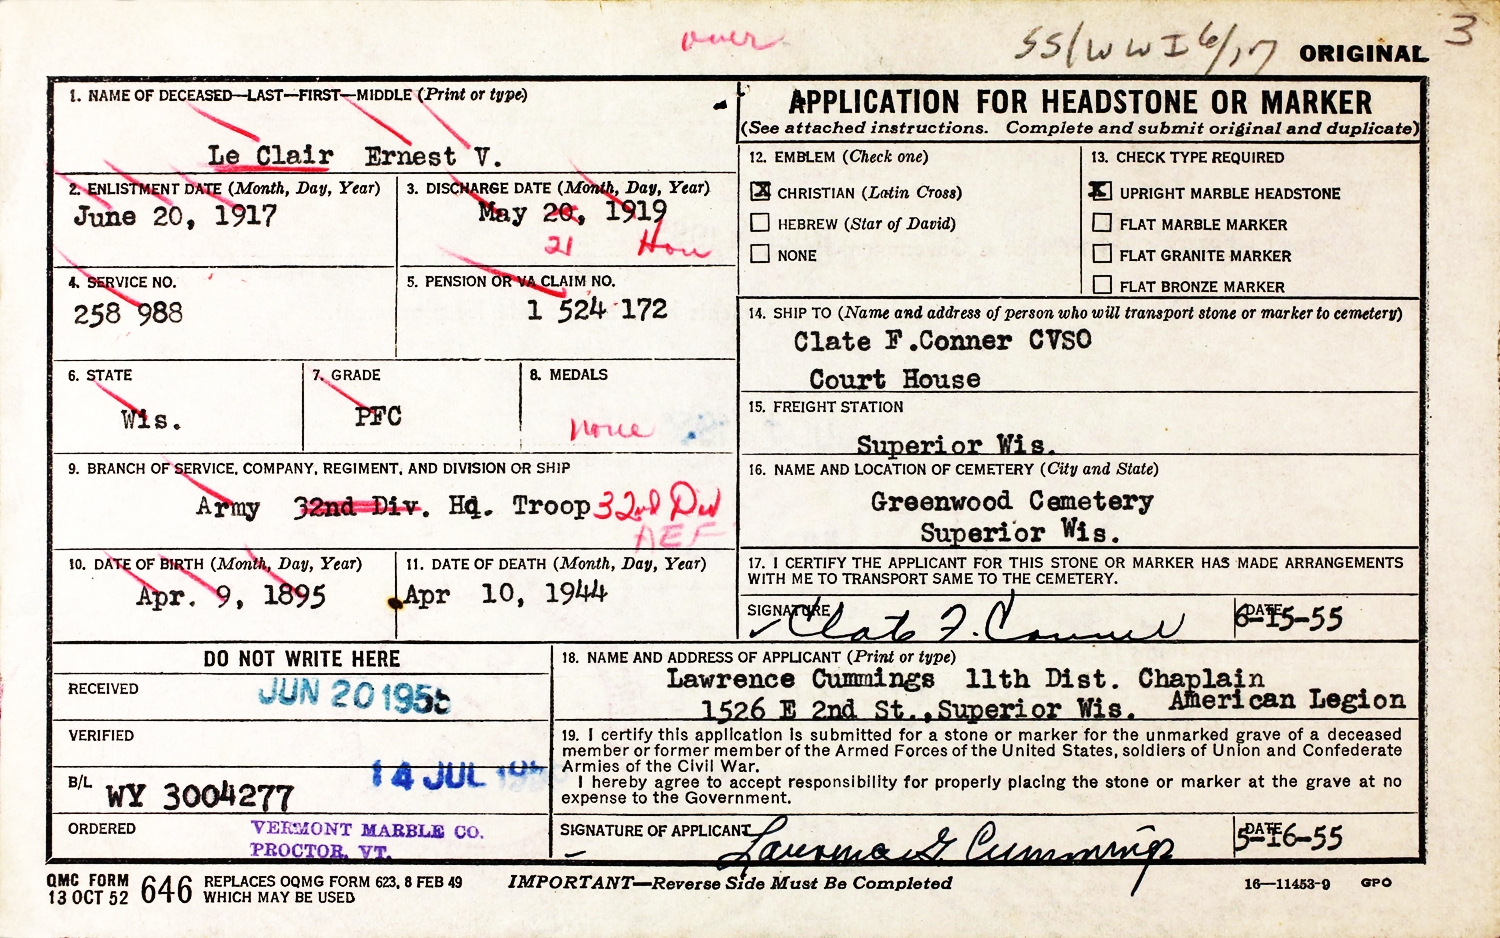 over
SS/WWI 6/17 ORIGINAL 3
1. NAME OF DECEASED—LAST—FIRST—MIDDLE (Print or type)
Le Clair Ernest V.
2. ENLISTMENT DATE (Month, Day, Year)
June 20, 1917
3. DISCHARGE DATE (Month, Day, Year)
May 20, 1919
21 Hon
4. SERVICE NO.
258 988
5. PENSION OR VA CLAIM NO.
1 524 172
6. STATE
Wis.
7. GRADE
PFC
8. MEDALS
none
9. BRANCH OF SERVICE, COMPANY, REGIMENT, AND DIVISION OR SHIP
Army 32nd Div. Hq. Troop 32nd Div
AEF
10. DATE OF BIRTH (Month, Day, Year)
Apr. 9, 1895
11. DATE OF DEATH (Month, Day, Year)
Apr 10, 1944
APPLICATION FOR HEADSTONE OR MARKER
(See attached instructions. Complete and submit original and duplicate)
12. EMBLEM (Check one)
X CHRISTIAN (Latin Cross)
HEBREW (Star of David)
NONE
13. CHECK TYPE REQUIRED
X UPRIGHT MARBLE HEADSTONE
FLAT MARBLE MARKER
FLAT GRANITE MARKER
FLAT BRONZE MARKER
14. SHIP TO (Name and address of person who will transport stone or marker to cemetery)
Clate F.Conner CVSO
Court House
15. FREIGHT STATION
Superior Wis.
16. NAME AND LOCATION OF CEMETERY (City and State)
Greenwood Cemetery
Superior Wis.
17. I CERTIFY THE APPLICANT FOR THIS STONE OR MARKER HAS MADE ARRANGEMENTS
WITH ME TO TRANSPORT SAME TO THE CEMETERY.
SIGNATURE Clate F. Conner
DATE 6-15-55
DO NOT WRITE HERE
RECEIVED JUN 20 1955
VERIFIED
14 JUL
B/L WY 3004277
ORDERED VERMONT MARBLE CO.
PROCTOR, VT.
18. NAME AND ADDRESS OF APPLICANT (Print or type)
Lawrence Cummings 11th Dist. Chaplain
1526 E 2nd St.,Superior Wis. American Legion
19. I certify this application is submitted for a stone or marker for the unmarked grave of a deceased
member or former member of the Armed Forces of the United States, soldiers of Union and Confederate
Armies of the Civil War.
I hereby agree to accept responsibility for properly placing the stone or marker at the grave at no
expense to the Government.
SIGNATURE OF APPLICANT Lawrence G. Cummings
DATE 5-16-55
QMC FORM
13 OCT 52 646 REPLACES OQMG FORM 623, 8 FEB 49
WHICH MAY BE USED
IMPORTANT—Reverse Side Must Be Completed
16—11453-9 GPO